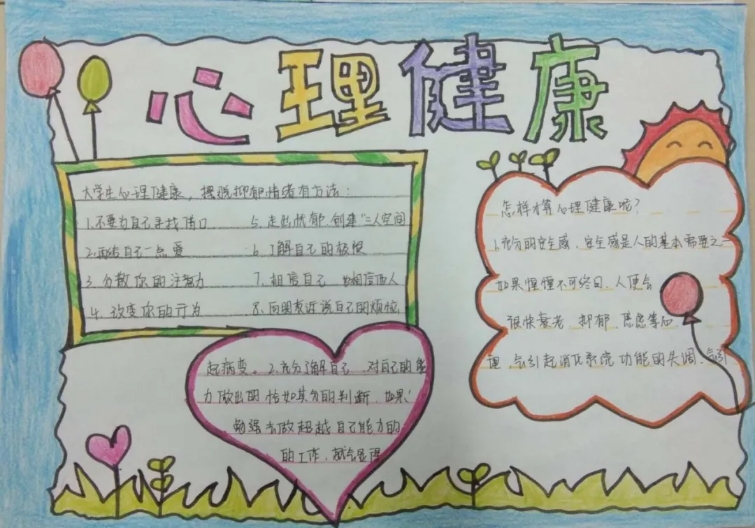 心理健康
大学生心理健康，摆脱抑郁情绪有方法：
1.不要为自己寻找借口
5.走出忧郁 创造"二人空间
2.再给自己一点爱
6.了解自己的极限
3.分散你的注意力
7.相信自己 也相信他人
4.改变你的行为
8.向朋友述说自己的烦恼
怎样才算心理健康呢？
1.充分的安全感，安全感是人的基本需要之一
如果惶惶不可终日，人便会
很快衰老 抑郁 焦虑等心
理，会引起消化系统 功能的失调 会引
起病变。2.充分了解自己 对自己的能
力做出的恰如其分的判断 如果
勉强去做超越自己能力的
的工作，就会显得